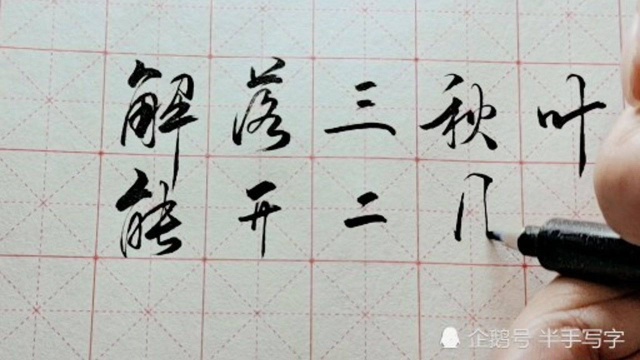 解落三秋叶
能开二
企鹅号 半手写字